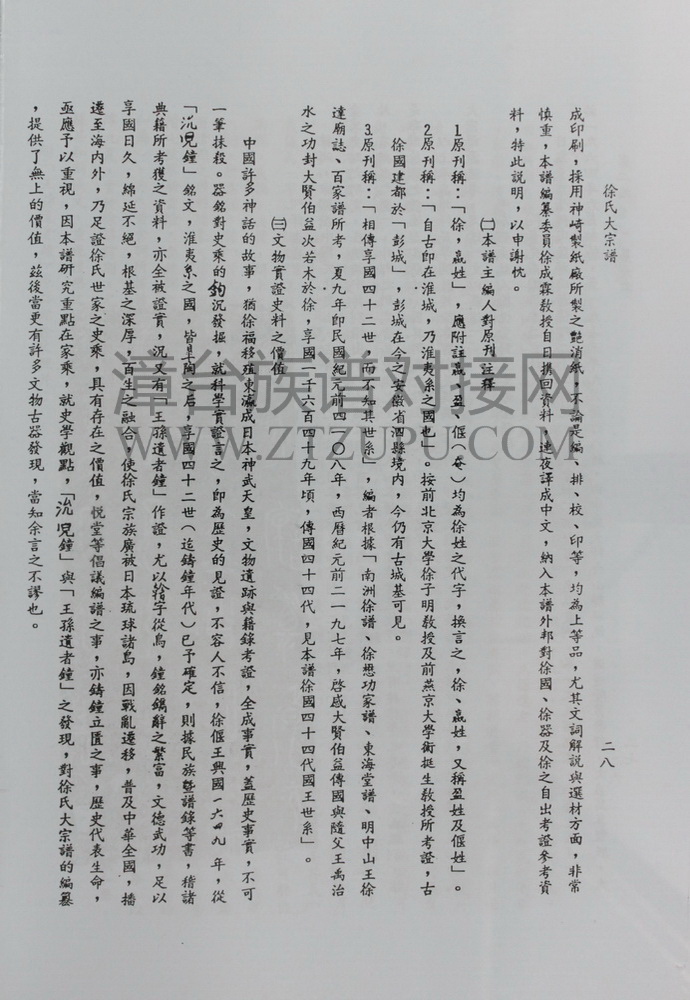 徐氏大宗譜
二八
成印刷，採用神崎製紙廠所製之艷消紙，不論是編、排、校、印等，均為上等品，尤其文詞解説與選材方面，非常
慎重，本譜編纂委員徐成霖教授自日携回資料，連夜譯成中文，納入本譜外邦對徐國、徐器及徐之自出考證參考資
料，特此説明，以申謝忱。
㈡本譜主編人對原刊註釋
1.原刊稱：「徐，嬴姓」，應附註嬴、盈、偃（奄）均為徐姓之代字，換言之，徐、嬴姓，又稱盈姓及偃姓」。
2.原刊稱：「自古即在淮城，乃淮夷系之國也」。按前北京大學徐子明教授及前燕京大學衛挺生教授所考證，古
徐國建都於「彭城」，彭城在今之安徽省泗縣境内，今仍有古城基可見。
3.原刊稱：「相傳享國四十二世，而不知其世系」，編者根據「南洲徐譜、徐懋功家譜、東海堂譜、明中山王徐
達廟誌、百家譜所考，夏九年即民國紀元前四一〇八年，西曆紀元前二一九七年，啓感大賢伯益傳國與隨父王禹治
水之功封大賢伯益次若木於徐，享國一千六百四十九年頃，傳國四十四代，見本譜徐國四十四代國王世系」。
㈢文物實證史料之價值
中國許多神話的故事，猶徐福移殖東瀛成日本神武天皇，文物遺跡與籍錄考證，全成事實，蓋歷史事實，不可
一筆抹殺。器銘對史乘的鈎沉發掘，就科學實證言之，即為歷史的見證，不容人不信，徐偃王興國一六四九年，從
「沇兒鐘」銘文，淮夷系之國，皆皐陶之后，享國四十二世（迄鑄鐘年代）已予確定，則據民族暨譜錄等書，稽諸
典籍所考獲之資料，亦全被證實，況又有「王孫遺者鐘」作證，尤以字從鳥，鐘銘鐫辭之繁富，文德武功，足以
享國日久，綿延不絕，根基之深厚，百生之融合，使徐氏宗族廣被日本琉球諸島，因戰亂遷移，普及中華全國，播
遷至海内外，乃足證徐氏世家之史乘，具有存在之價值，悦堂等倡議編譜之事，亦鑄鐘立匱之事，歷史代表生命，
亟應予以重視，因本譜研究重點在家乘，就史學觀點，「沇兒鐘」與「王孫遺者鐘」之發現，對徐氏大宗譜的編纂
，提供了無上的價值，茲後當更有許多文物古器發現，當知余言之不謬也。
漳台族谱对接网
WWW.ZTZUPU.COM